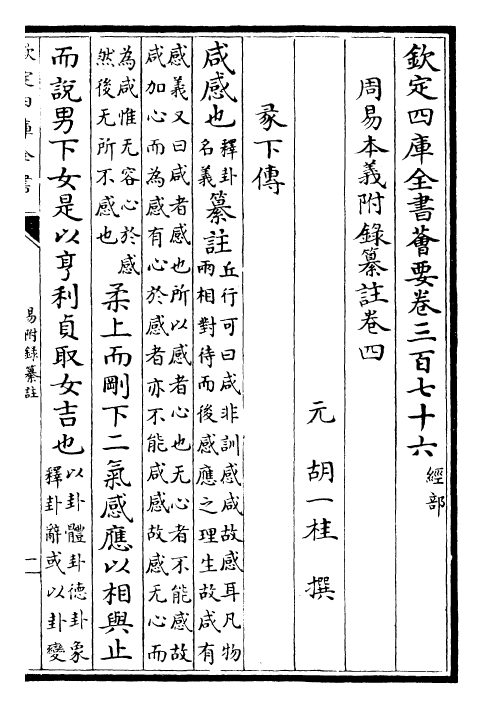 欽定四庫全書薈要卷三百七十六
經部
周易本義附錄纂註卷四
元 胡一桂 撰
彖下傳
咸感也
釋卦
名義
纂註
丘行可曰咸非訓感咸故感耳凡物
兩相對待而後感應之理生故咸有
感義又曰咸者感也所以感者心也无心者不能感故
咸加心而為感有心於感者亦不能咸感故感无心而
為咸惟无容心於感
然後无所不感也
柔上而剛下二氣感應以相與止
而說男下女是以亨利貞取女吉也
以卦體卦德卦象
釋卦辭或以卦變
欽定四庫全書
易附錄纂註
一